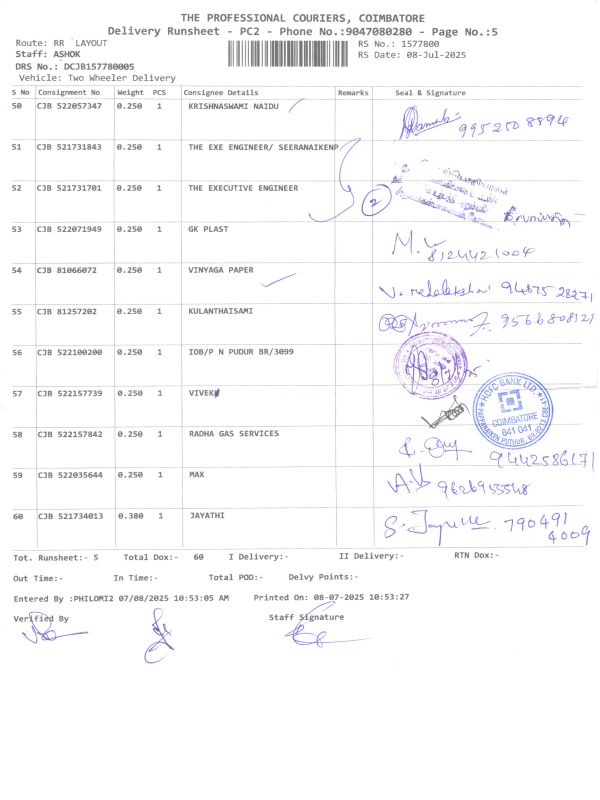 THE PROFESSIONAL COURIERS, COIMBATORE
Delivery Runsheet - PC2 - Phone No.:9047080280 - Page No.:5
Route: RR LAYOUT RS No.: 1577800
Staff: ASHOK RS Date: 08-Jul-2025
DRS No.: DCJB157780005
Vehicle: Two Wheeler Delivery
S No Consignment No Weight PCS Consignee Details Remarks Seal & Signature
50 CJB 522057347 0.250 1 KRISHNASWAMI NAIDU 9952508894
51 CJB 521731843 0.250 1 THE EXE ENGINEER/ SEERANAIKENP
52 CJB 521731701 0.250 1 THE EXECUTIVE ENGINEER 2
53 CJB 522071949 0.250 1 GK PLAST 8124421004
54 CJB 81066072 0.250 1 VINYAGA PAPER 94875 28271
55 CJB 81257202 0.250 1 KULANTHAISAMI 9566808121
56 CJB 522100200 0.250 1 IOB/P N PUDUR BR/3099
57 CJB 522157739 0.250 1 VIVEK
HDFC BANK LTD.
COIMBATORE
641 041
58 CJB 522157842 0.250 1 RADHA GAS SERVICES 9442586171
59 CJB 522035644 0.250 1 MAX 9626955548
60 CJB 521734013 0.380 1 JAYATHI 790491
4009
Tot. Runsheet:- 5 Total Dox:- 60 I Delivery:- II Delivery:- RTN Dox:-
Out Time:- In Time:- Total POD:- Delvy Points:-
Entered By :PHILOMI2 07/08/2025 10:53:05 AM Printed On: 08-07-2025 10:53:27
Verified By Staff Signature